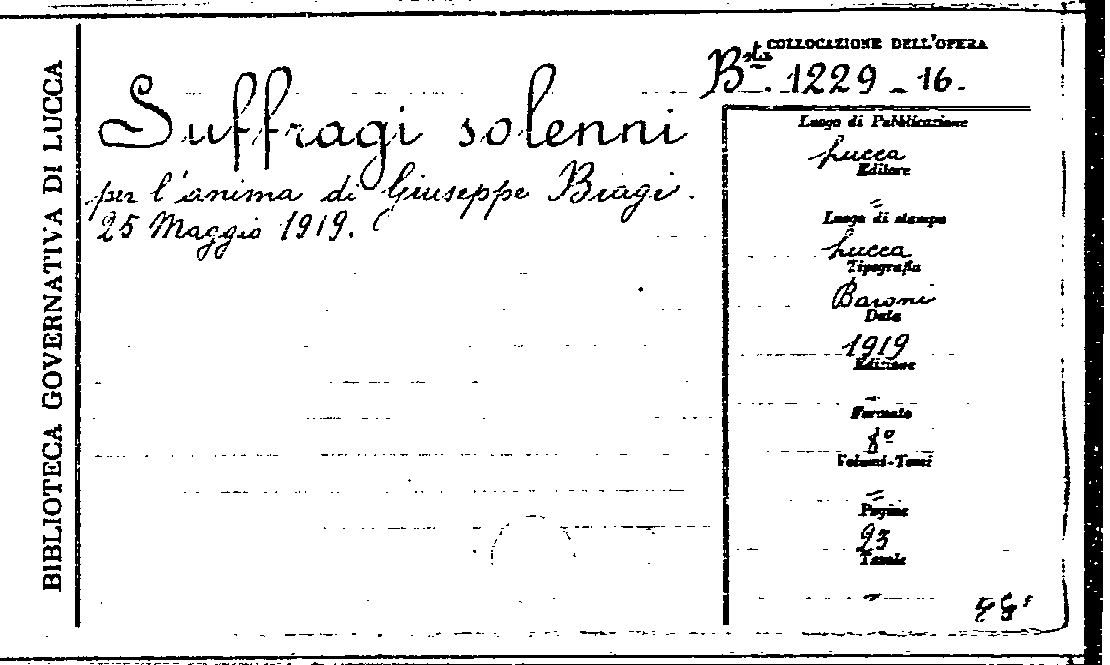 BIBLIOTECA GOVERNATIVA DI LUCCA
Suffragi solenni
per l'anima di Giuseppe Biagi.
25 Maggio 1919.
COLLOCAZIONE DELL'OPERA
Bsta. 1229 - 16.
Luogo di Pubblicazione
Lucca
Editore
=
Luogo di stampa
Lucca
Tipografia
Baroni
Data
1919
Edizione
-
Formato
8º
Volumi-Tomi
=
Pagine
23
Tavole
-